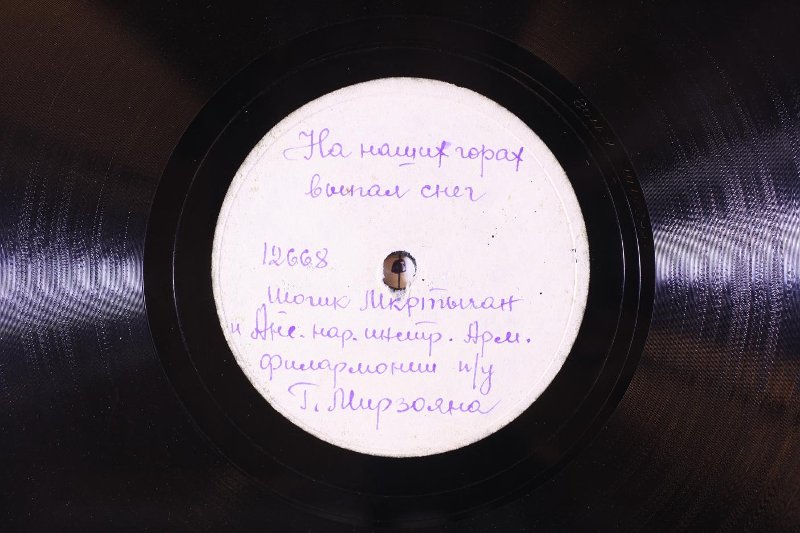 На наших горах
выпал снег
12668
Шогик Мкртычан
и Анс. нар. инстр. Арм.
филармонии п/у
Г. Мирзояна